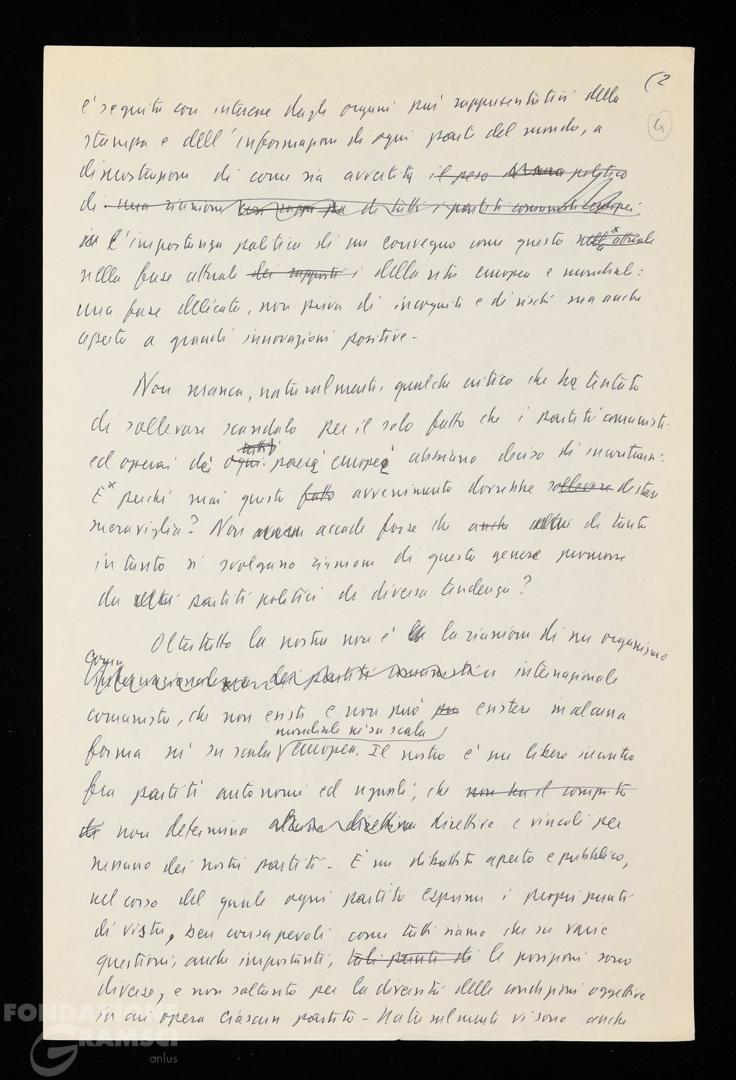 (2
4
è seguita con interesse dagli organi più rappresentativi della
stampa e dell'informazione di ogni parte del mondo, a
dimostrazione di come sia avvertita il peso politico
di una riunione di tutti i partiti comunisti europei,
l'importanza politica di un convegno come questo attuale
nella fase attuale dei rapporti della vita europea e mondiale:
una fase delicata, non priva di incognite e di rischi ma anche
aperta a grandi innovazioni positive.
Non manca, naturalmente, qualche critico che ha tentato
di sollevare scandalo per il solo fatto che i partiti comunisti
tutti i
ed operai dei ogni paesi europei abbiano deciso di incontrarsi.
E perché mai questo fatto avvenimento dovrebbe sollevare destare
meraviglia? Non accade forse che anche di tanto
in tanto si svolgano riunioni di questo genere promosse
da altri partiti politici di diversa tendenza?
Oltretutto la nostra non è la riunione di un organismo
internazionale dei partiti comunisti internazionale
comunista, che non esiste e non può esistere in alcuna
mondiale né su scala
forma né su scala europea. Il nostro è un libero incontro
fra partiti autonomi ed uguali, che non ha il compito
di non determina alcuna direttiva direttive e vincoli per
nessuno dei nostri partiti. È un dibattito aperto e pubblico,
nel corso del quale ogni partito esprime i propri punti
di vista, ben consapevoli come tutti siamo che su varie
questioni, anche importanti, tali punti di le posizioni sono
diverse, e non soltanto per la diversità delle condizioni oggettive
in cui opera ciascun partito. Naturalmente vi sono anche
FONDAZIONE
GRAMSCI
onlus